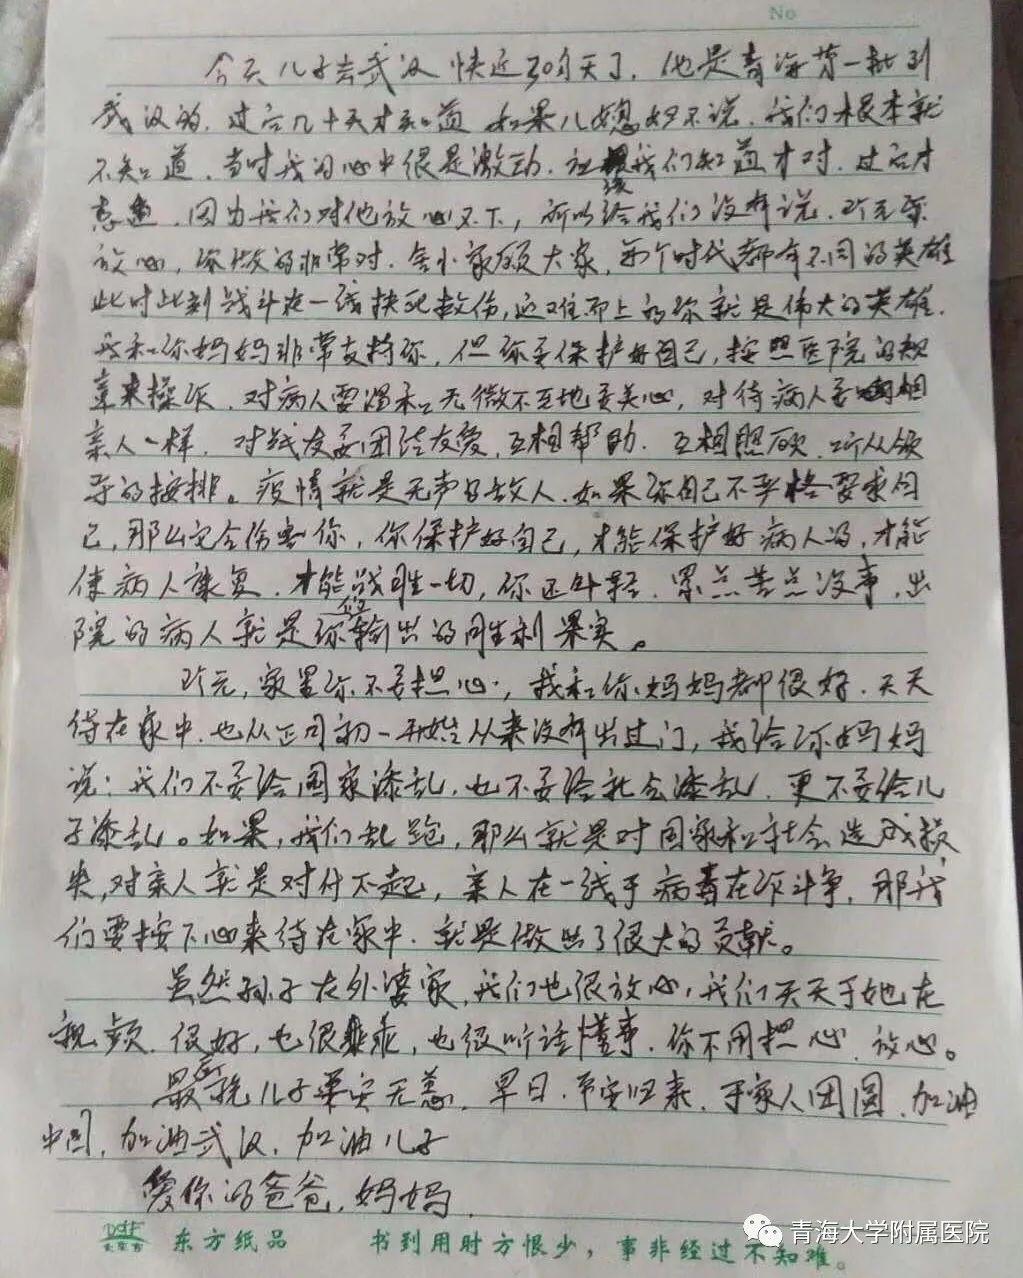 No
今天儿子去武汉快近30天了,他是青海第一批到
武汉的.过后几十天才知道 如果儿媳妇不说.我们根本就
不知道.当时我的心中很是激动.应该我们知道才对.过后才
意.因为我们对他放心不下,所以给我们没有说.
放心,你做的非常对.舍小家顾大家,每个时代都有不同的英雄
此时此刻战斗在一线扶死救伤,迎难而上的你就是伟大的英雄.
我和你妈妈非常支持你,但你要保护好自己,按照医院的规
章来操作.对病人要温和无微不至地要关心,对待病人要相
亲人一样.对战友要团结友爱,互相帮助.互相照顾.听从领
导的按排。疫情就是无声的敌人.如果你自己不严格要求自
己,那么它会伤害你,你保护好自己,才能保护好病人吗,才能
使病人康复.才能战胜一切,你还年轻.累点苦点没事,出
院的病人就是你们输出的胜利果实。
元,家里你不要担心,我和你妈妈都很好.天天
待在家中.也从正月初一开始从来没有出过门,我给你妈妈
说:我们不要给国家添乱,也不要给社会添乱.更不要给儿
子添乱。如果,我们乱跑,那么就是对国家和社会造成损
失,对亲人就是对付不起,亲人在一线于病毒在作斗争,那我
们要按下心来待在家中.就是做出了很大的贡献。
虽然孙子在外婆家,我们也很放心,我们天天于她在
视频.很好,也很乖,也很听话懂事.你不用担心.放心。
最后祝儿子平安无恙.早日.平安归来.于家人团圆.加油
中国,加油武汉.加油儿子
爱你的爸爸.妈妈.
东方纸品 书到用时方恨少,事非经过不知难。
青海大学附属医院